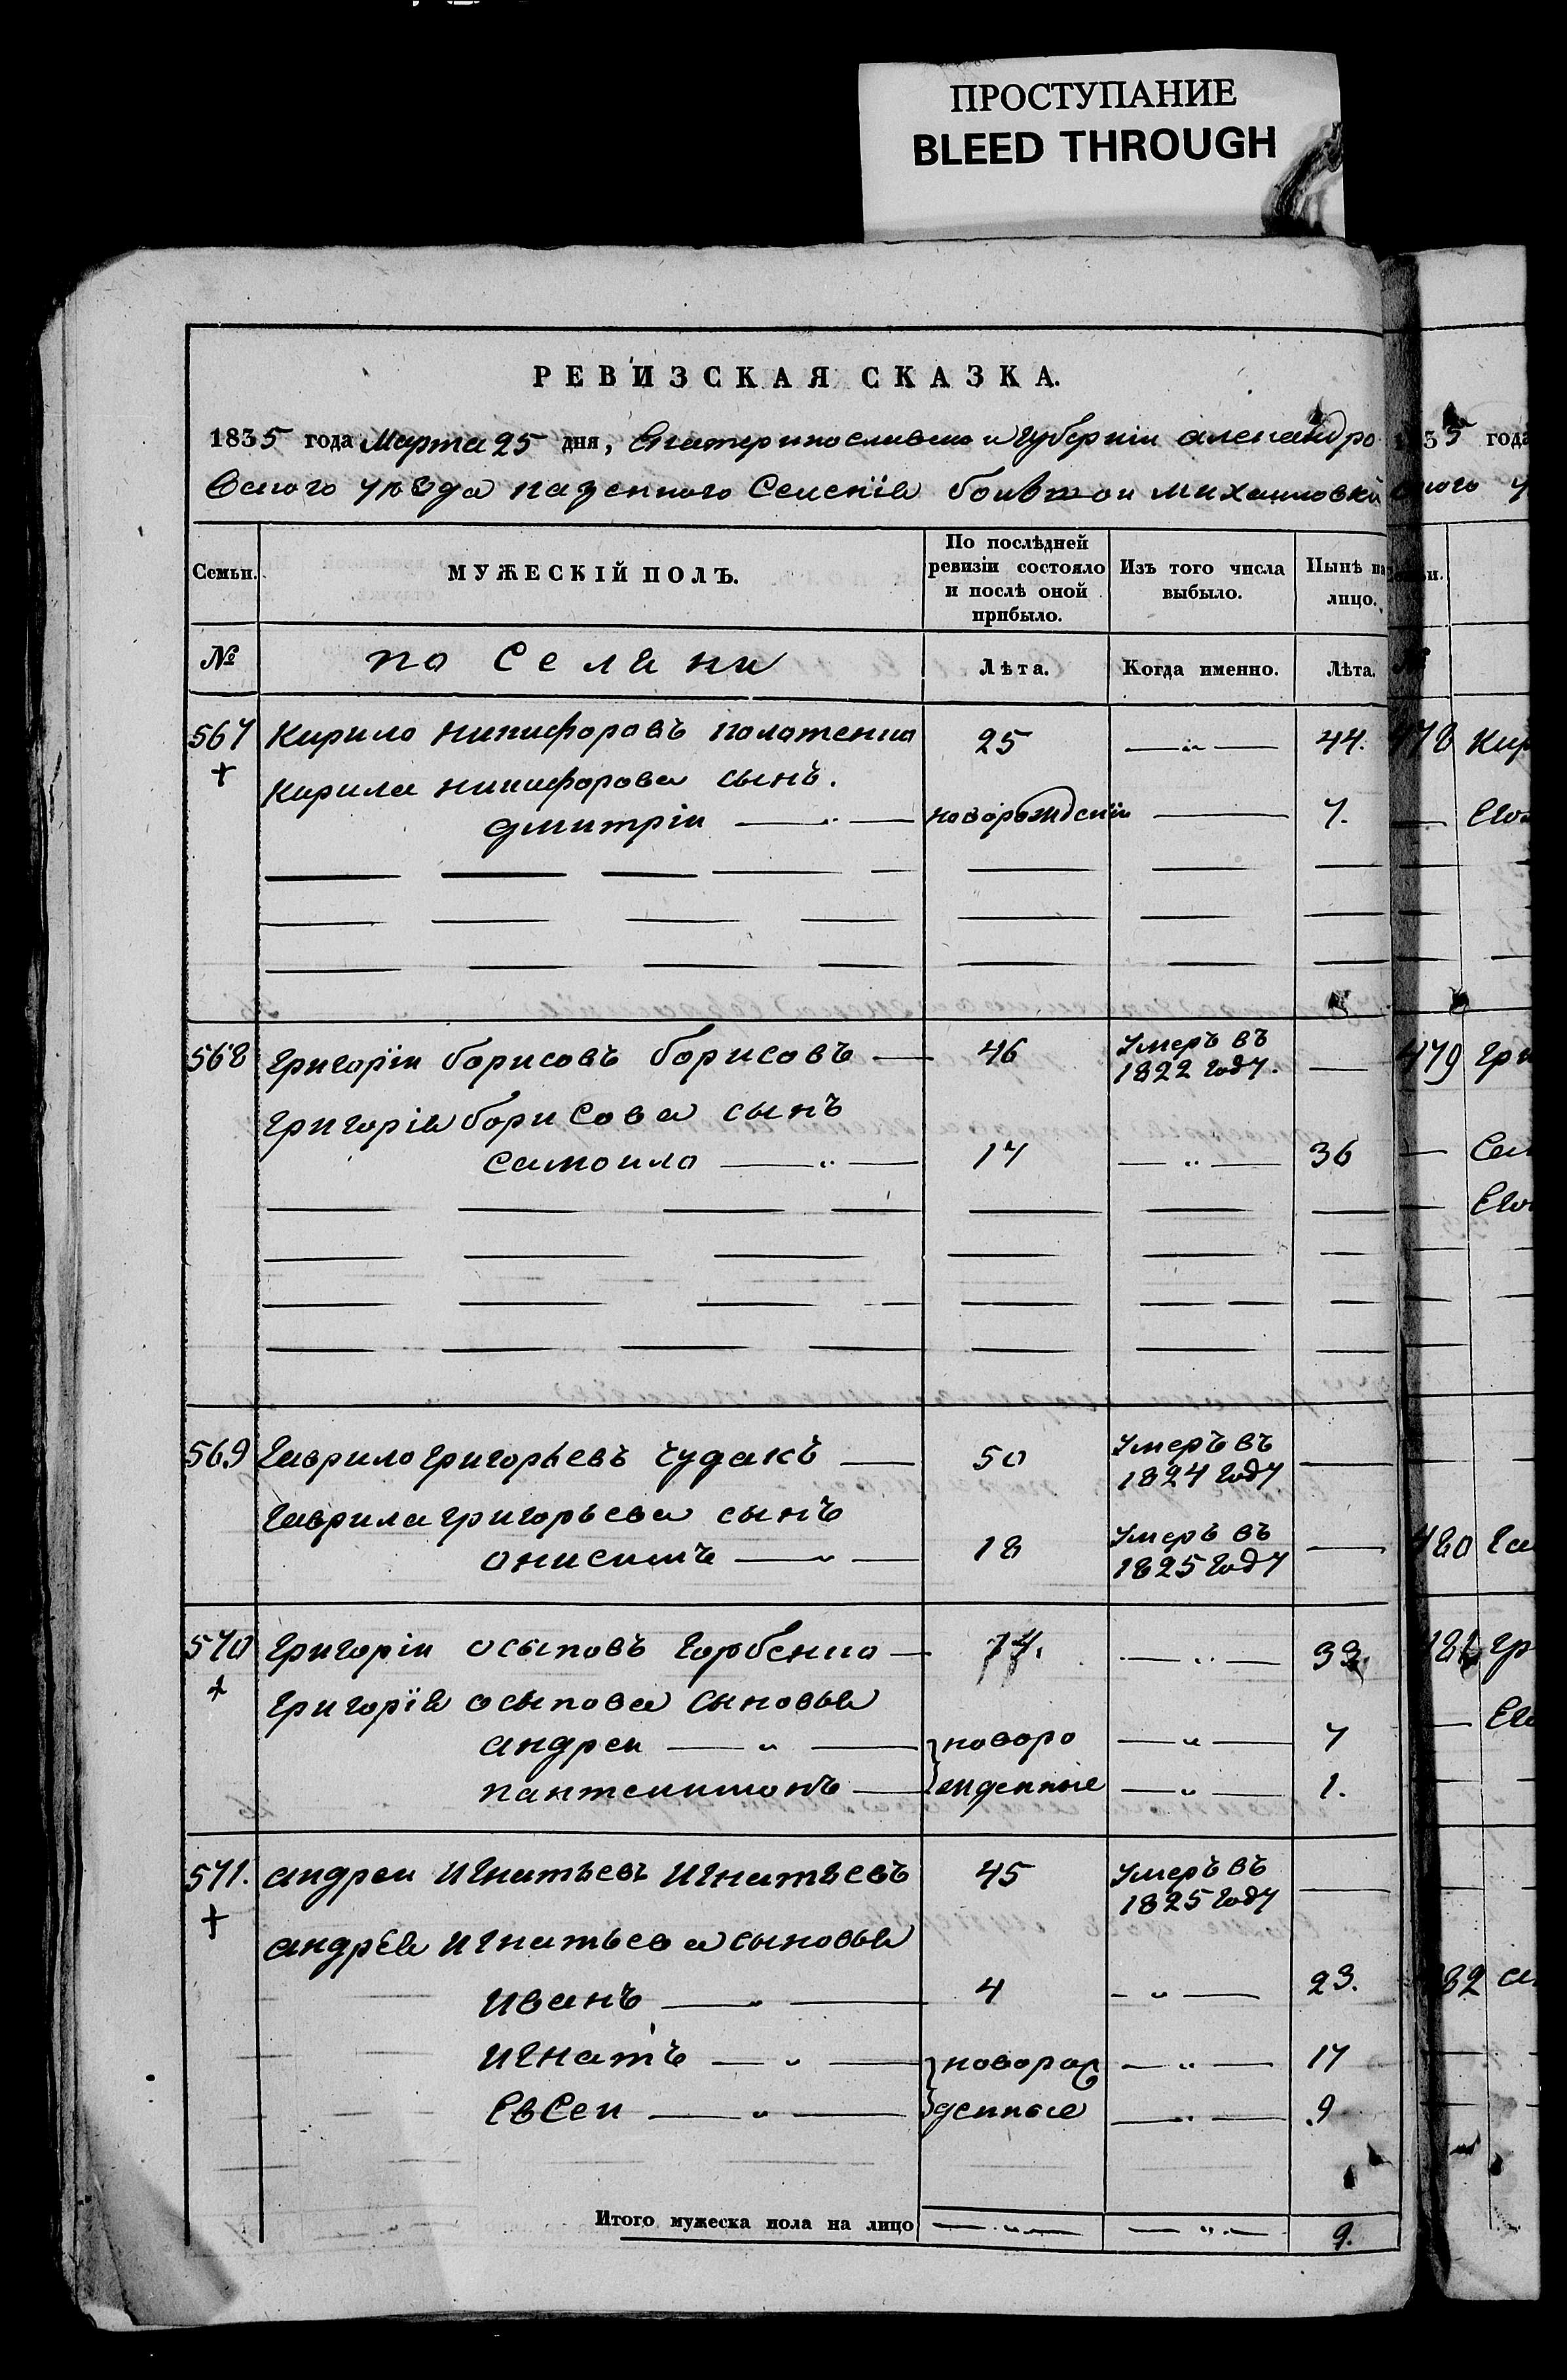 ПРОСТУПАНИЕ
BLEED THROUGH
РЕВИЗСКАЯ СКАЗКА.
1835 года Марта 25 дня, Екатеринославской Губерніи александро
вского уѣзда казенного Селенія болшой михайловки
Семьи. МУЖЕСКІЙ ПОЛЪ. По послѣдней ревизіи состояло и послѣ оной прибыло. Изъ того числа выбыло. Нынѣ на лицо.
№ поселяни Лѣта. Когда именно. Лѣта.
567 Кирило никифоровъ полотенко 25 — 44.
+ Кирила никифорова сынъ.
дмитріи — новорожденіи — 7.
568 григоріи борисовъ борисовъ — 46 Умеръ въ 1822 году. —
григорія борисова сынъ
самоило — 17 — 36
569 гаврило григорьевъ чудакъ — 50 Умеръ въ 1824 году —
гаврила григорьева сынъ
онисимъ — 18 Умеръ въ 1825 году —
570 григоріи осыповъ горбенко — 14. — 33.
+ григорія осыпова сыновья
андреи — новоро — 7
пантелимонъ — жденные — 1.
571. андреи игнатьевъ игнатьевъ 45 Умеръ въ 1825 году —
+ андрѣя игнатьева сыновья
иванъ — 4 — 23.
игнатъ — новорож — 17
Евсеи — денные — 9
Итого мужеска пола на лицо — — 9.